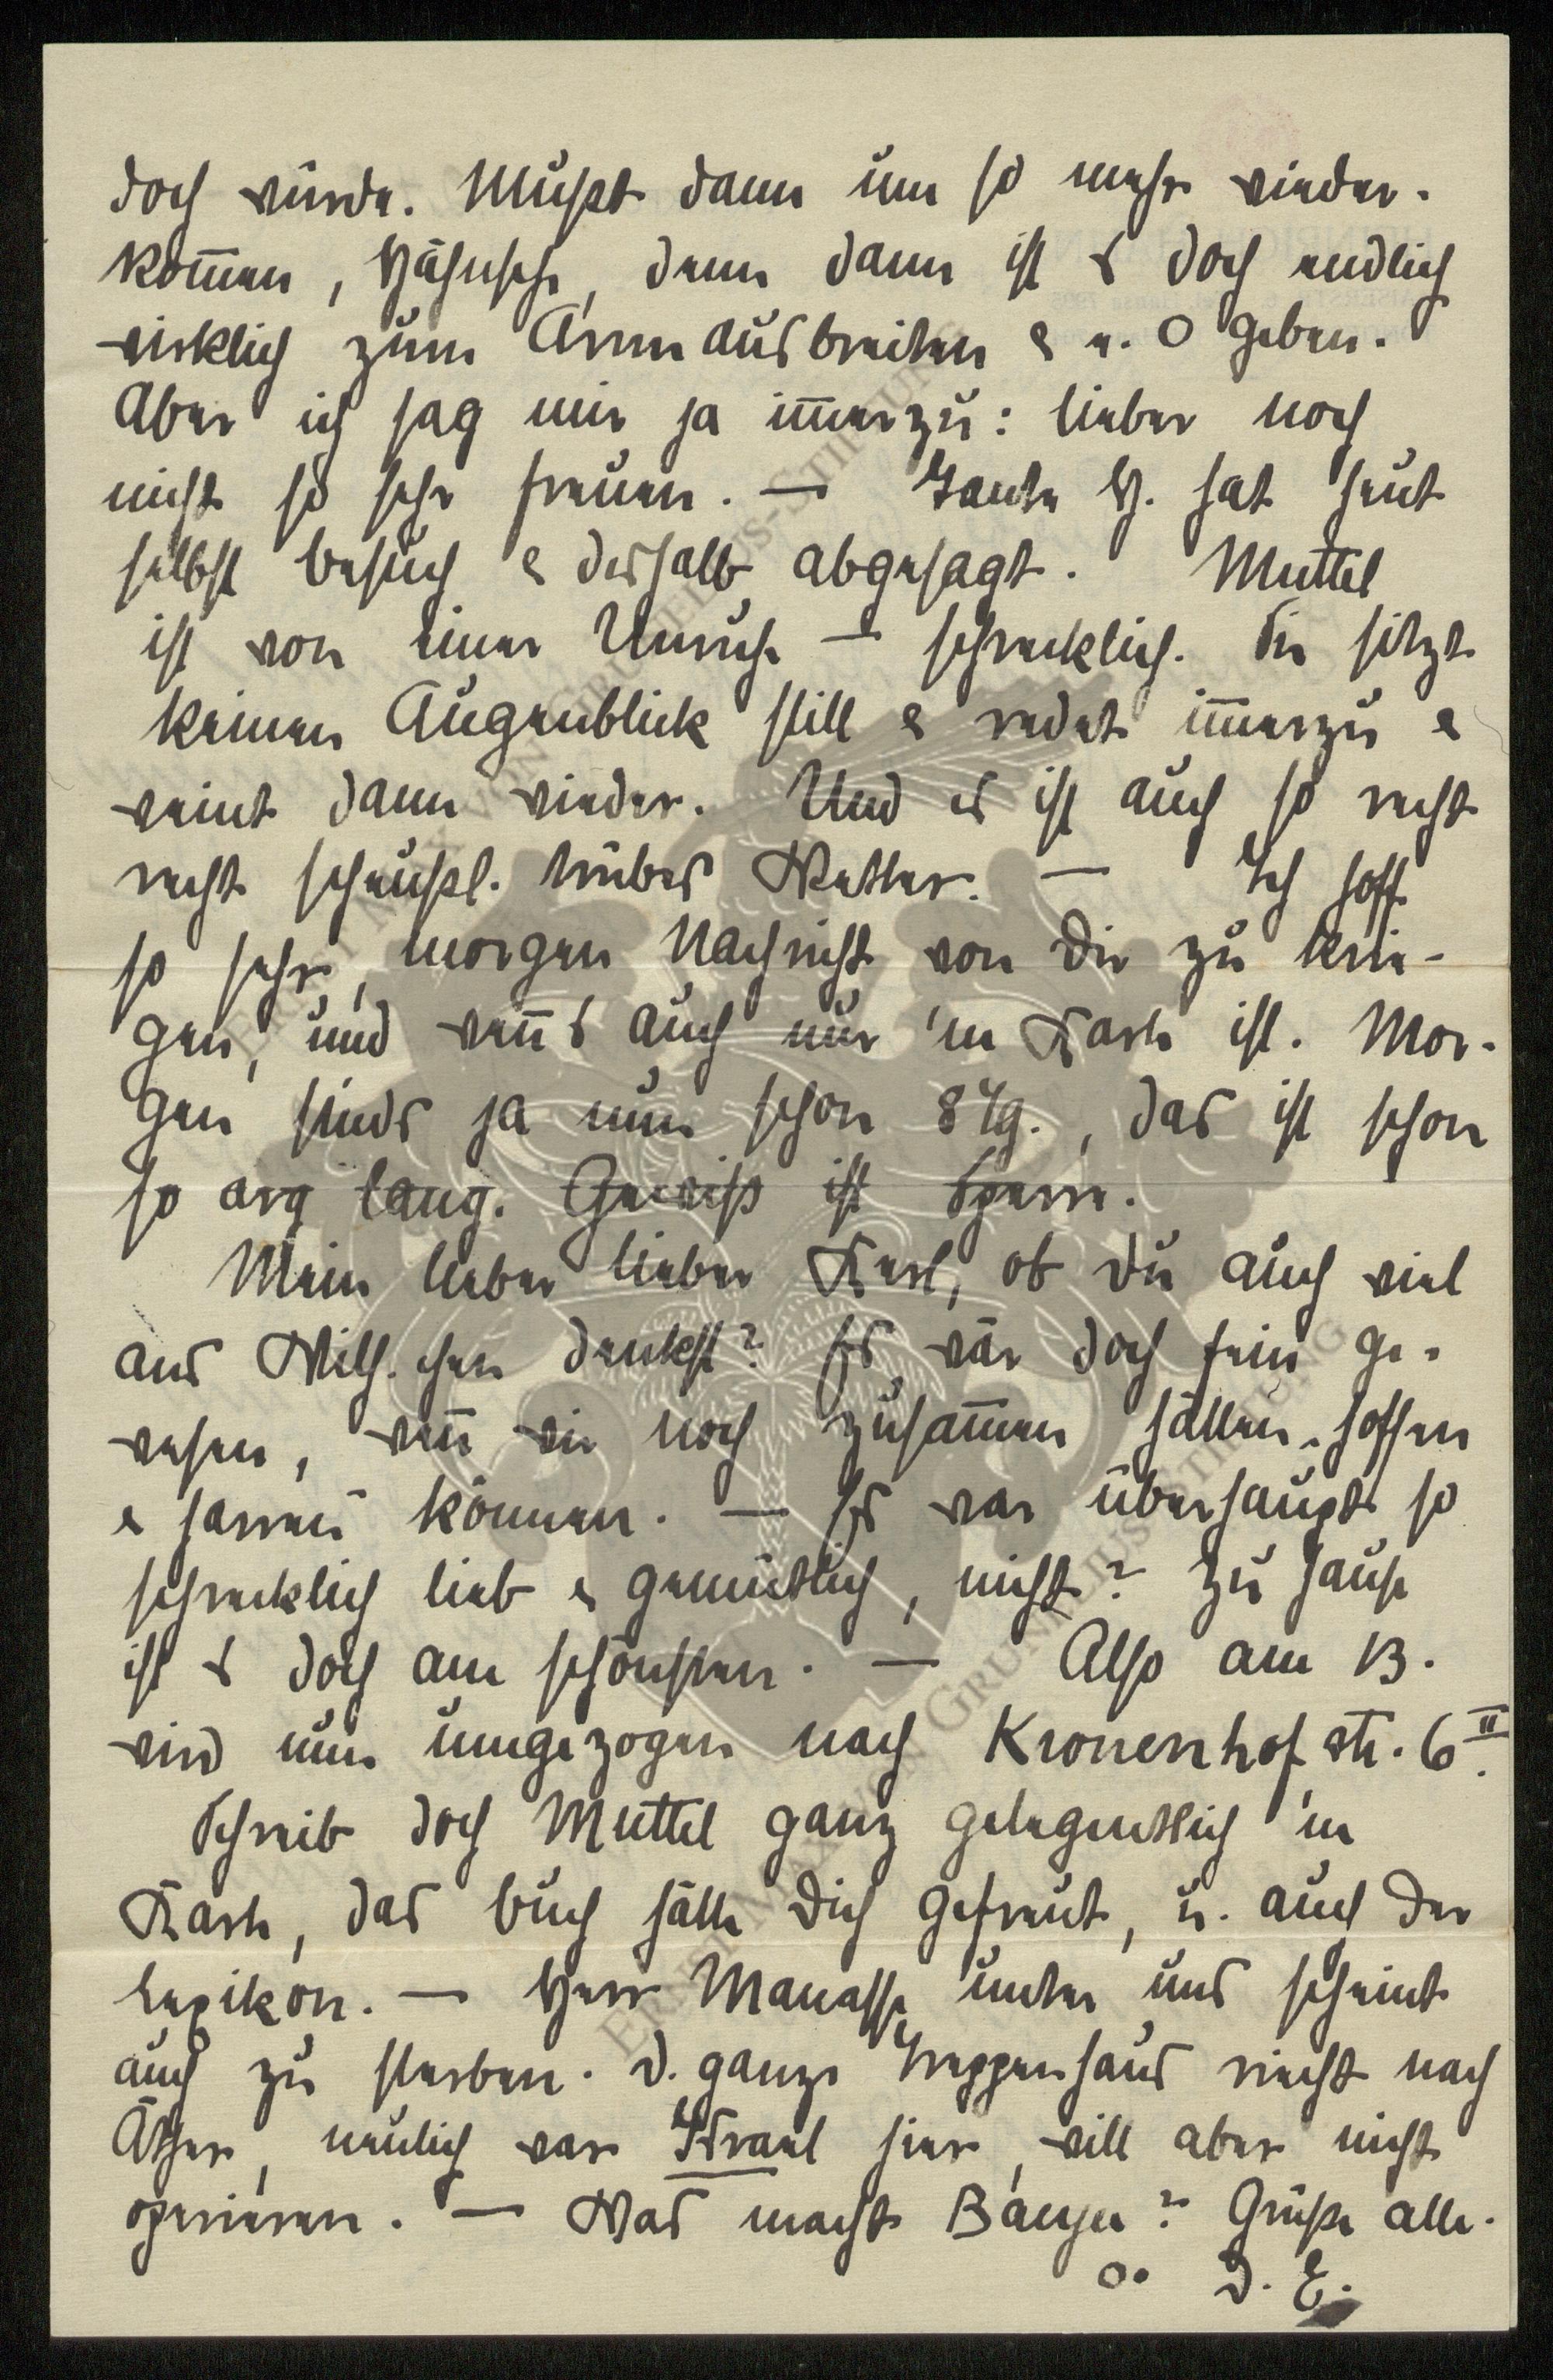 doch würde. Mußt dann um so mehr wieder-
kom̄en, Hähnsche, denn dann ist s doch endlich
wirklich zum Armausbreiten & e. O geben.
Aber ich sag mir ja im̄erzu: lieber noch
nicht so sehr freuen. — Tante H. hat heut
selbst Besuch & deshalb abgesagt. Muttel
ist von einer Unruhe — schrecklich. Sie sitzt
keinen Augenblick still & redet im̄erzu &
weint dann wieder. Und es ist auch so recht
recht scheußl. trübes Wetter. — Ich hoff
so sehr, morgen Nachricht von Dir zu krie-
gen, und wen̄s auch nur 'ne Karte ist. Mor-
gen sinds ja nun schon 8 Tg., das ist schon
so arg lang. Gewiß ist Sperre.
Mein lieber lieber Karl, ob Du auch viel
ans Wilh.chen denkst? Es wär doch fein ge-
wesen, wen̄ wir noch zusam̄en hätten hoffen
& harren können. — Es war überhaupt so
schrecklich lieb & gemütlich, nicht? Zu Hause
ist s doch am schönsten. — Also am 13.
wird nun umgezogen nach Kronenhofstr. 6 II.
Schreib doch Muttel ganz gelegentlich 'ne
Karte, das Buch hätte Dich gefreut, u. auch der
Lexikon. — Herr Manasse unter uns scheint
auch zu sterben. D. ganze Treppenhaus riecht nach
Äther, neulich war Israel hier, will aber nicht
operieren. — Was macht ? Grüße alle.
D. E.